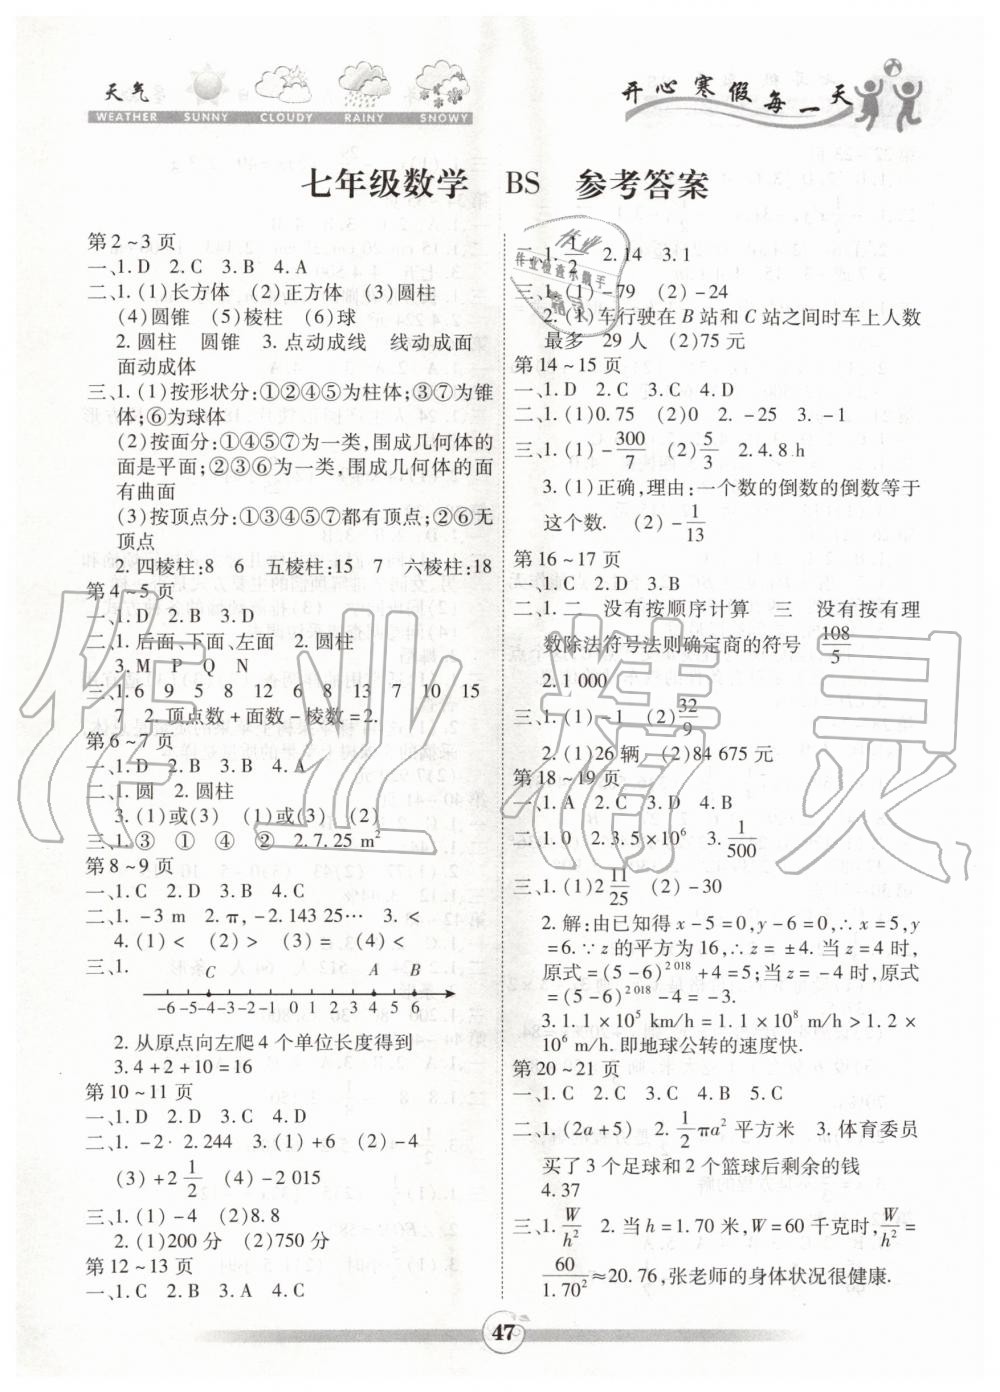 天气
WEATHER SUNNY CLOUDY RAINY SNOWY
开心寒假每一天
七年级数学 BS 参考答案
第2~3页
一、1. D 2. C 3. B 4. A
二、1. (1)长方体 (2)正方体 (3)圆柱
(4)圆锥 (5)棱柱 (6)球
2. 圆柱 圆锥 3. 点动成线 线动成面
面动成体
三、1. (1)按形状分:①②④⑤为柱体;③⑦为锥
体;⑥为球体
(2)按面分:①④⑤⑦为一类,围成几何体的
面是平面;②③⑥为一类,围成几何体的面
有曲面
(3)按顶点分:①③④⑤⑦都有顶点;②⑥无
顶点
2. 四棱柱:8 五棱柱:15 7 六棱柱:18
第4~5页
一、1. D 2. B 3. D
二、1. 后面、下面、左面 2. 圆柱
3. M P Q N
三、1. 6 9 5 8 12 6 8 13 7 10 15
7 2. 顶点数+面数-棱数=2.
第6~7页
一、1. D 2. B 3. B 4. A
二、1. 圆 2. 圆柱
3. (1)或(3) (1)或(3) (2)
三、1. ③ ① ④ ② 2. 7. 25 m²
第8~9页
一、1. C 2. D 3. B 4. C
二、1. -3 m 2. π, -2. 143 25… 3. <
4. (1)< (2)> (3)= (4)<
三、1.
C A B
-6 -5 -4 -3 -2 -1 0 1 2 3 4 5 6
2. 从原点向左爬 4 个单位长度得到
3. 4+2+10=16
第10~11页
一、1. D 2. D 3. C 4. D
二、1. -2 2. 244 3. (1)+6 (2)-4
(3)+2 1/2 (4)-2 015
三、1. (1)-4 (2)8. 8
2. (1)200分 (2)750分
第12~13页
一、1. C 2. B 3. A 4. C
二、1. 1/2 2. 14 3. 1
三、1. (1)-79 (2)-24
2. (1)车行驶在 B 站和 C 站之间时车上人数
最多 29人 (2)75元
第14~15页
一、1. D 2. C 3. C 4. D
二、1. (1)0. 75 (2)0 2. -25 3. -1
三、1. (1)-300/7 (2)5/3 2. 4. 8 h
3. (1)正确,理由:一个数的倒数的倒数等于
这个数. (2)-1/13
第16~17页
一、1. C 2. D 3. C
二、1. 二 没有按顺序计算 三 没有按有理
数除法符号法则确定商的符号 108/5
2. 1 000
三、1. (1)-1 (2)32/9
2. (1)26辆 (2)84 675元
第18~19页
一、1. A 2. C 3. D 4. B
二、1. 0 2. 3. 5×10⁶ 3. 1/500
三、1. (1)2 11/25 (2)-30
2. 解:由已知得 x-5=0,y-6=0,∴x=5,y
=6. ∵z的平方为16,∴z=±4. 当z=4时,
原式=(5-6)²⁰¹⁸+4=5;当z=-4时,原式
=(5-6)²⁰¹⁸-4=-3.
3. 1. 1×10⁵ km/h=1. 1×10⁸ m/h>1. 2×
10⁶ m/h. 即地球公转的速度快.
第20~21页
一、1. C 2. C 3. C 4. B 5. C
二、1. (2a+5) 2. 1/2 πa² 平方米 3. 体育委员
买了 3 个足球和 2 个篮球后剩余的钱
4. 37
三、1. W/h² 2. 当 h=1. 70 米,W=60 千克时,W/h²=
60/1. 70²≈20. 76,张老师的身体状况很健康.
47
作业
作业检查小帮手
精灵
作业精灵